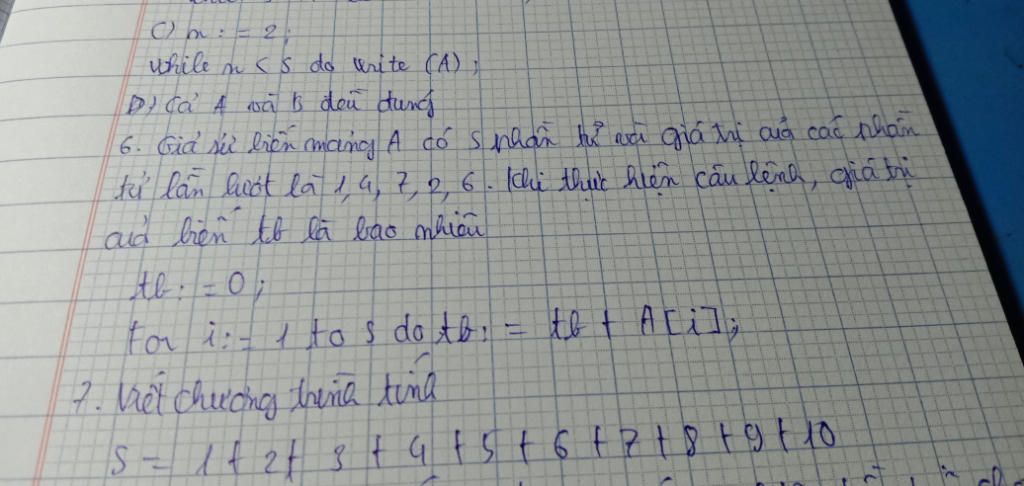 C) n := 2;
while n < 5 do write (A);
D) Cả A và B đều đúng
6. Giả sử biến mảng A có 5 phần tử và giá trị của các phần
tử lần lượt là 1, 4, 7, 2, 6. Khi thực hiện câu lệnh, giá trị
của biến tb là bao nhiêu
tb := 0;
for i := 1 to 5 do tb := tb + A[i];
7. Viết chương trình tính
S = 1 + 2 + 3 + 4 + 5 + 6 + 7 + 8 + 9 + 10